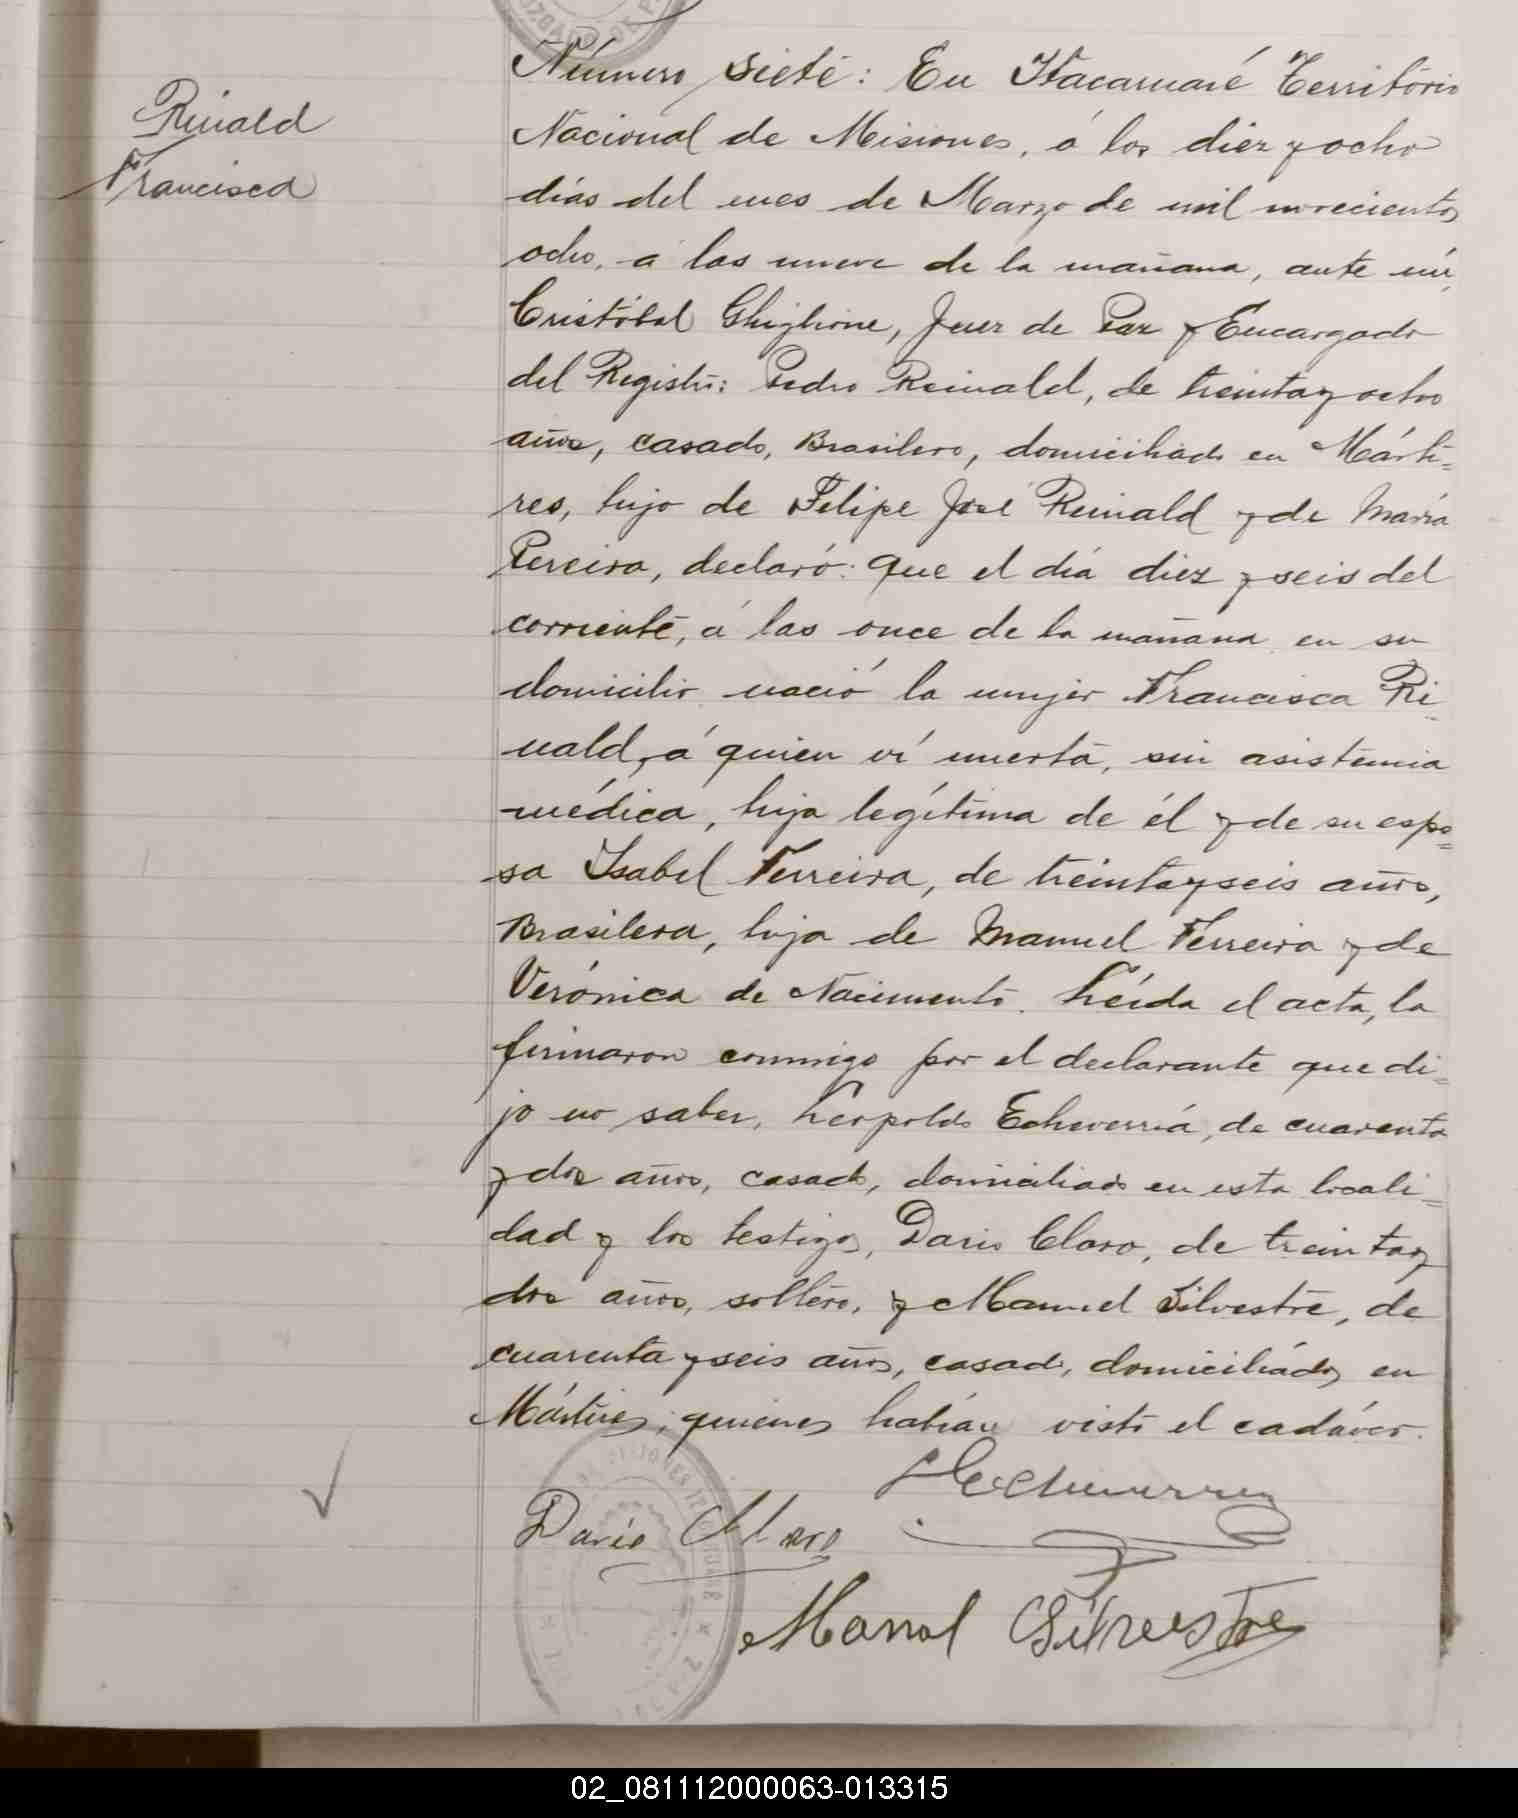 Rinald
Francisca
Número siete: En Itacaruaré Territorio
Nacional de Misiones, á los diez y ocho
días del mes de Marzo de mil novecientos
ocho, á las nueve de la mañana, ante mí,
Cristóbal Ghiglione, Juez de Paz y Encargado
del Registro: Pedro Reinald, de treinta y ocho
años, casado, Brasilero, domiciliado en Márti=
res, hijo de Felipe José Reinald y de María
Pereira, declaró: que el día diez y seis del
corriente, á las once de la mañana en su
domicilio nació la mujer Francisca Ri=
nald, á quien ví muerta, sin asistencia
médica, hija legítima de él y de su espo=
sa Isabel Ferreira, de treinta y seis años,
Brasilera, hija de Manuel Ferreira y de
Verónica de Nacimento. Leída el acta, la
firmaron conmigo por el declarante que di=
jo no saber, Leopoldo Echeverría, de cuarenta
y dos años, casado, domiciliado en esta locali=
dad y los testigos, Dario Claro, de treinta y
dos años, soltero, y Manuel Silvestre, de
cuarenta y seis años, casado, domiciliados en
Mártires, quienes habían visto el cadáver.
LEcheverria
Darío Claro
Manol Silvestre
02_081112000063-013315